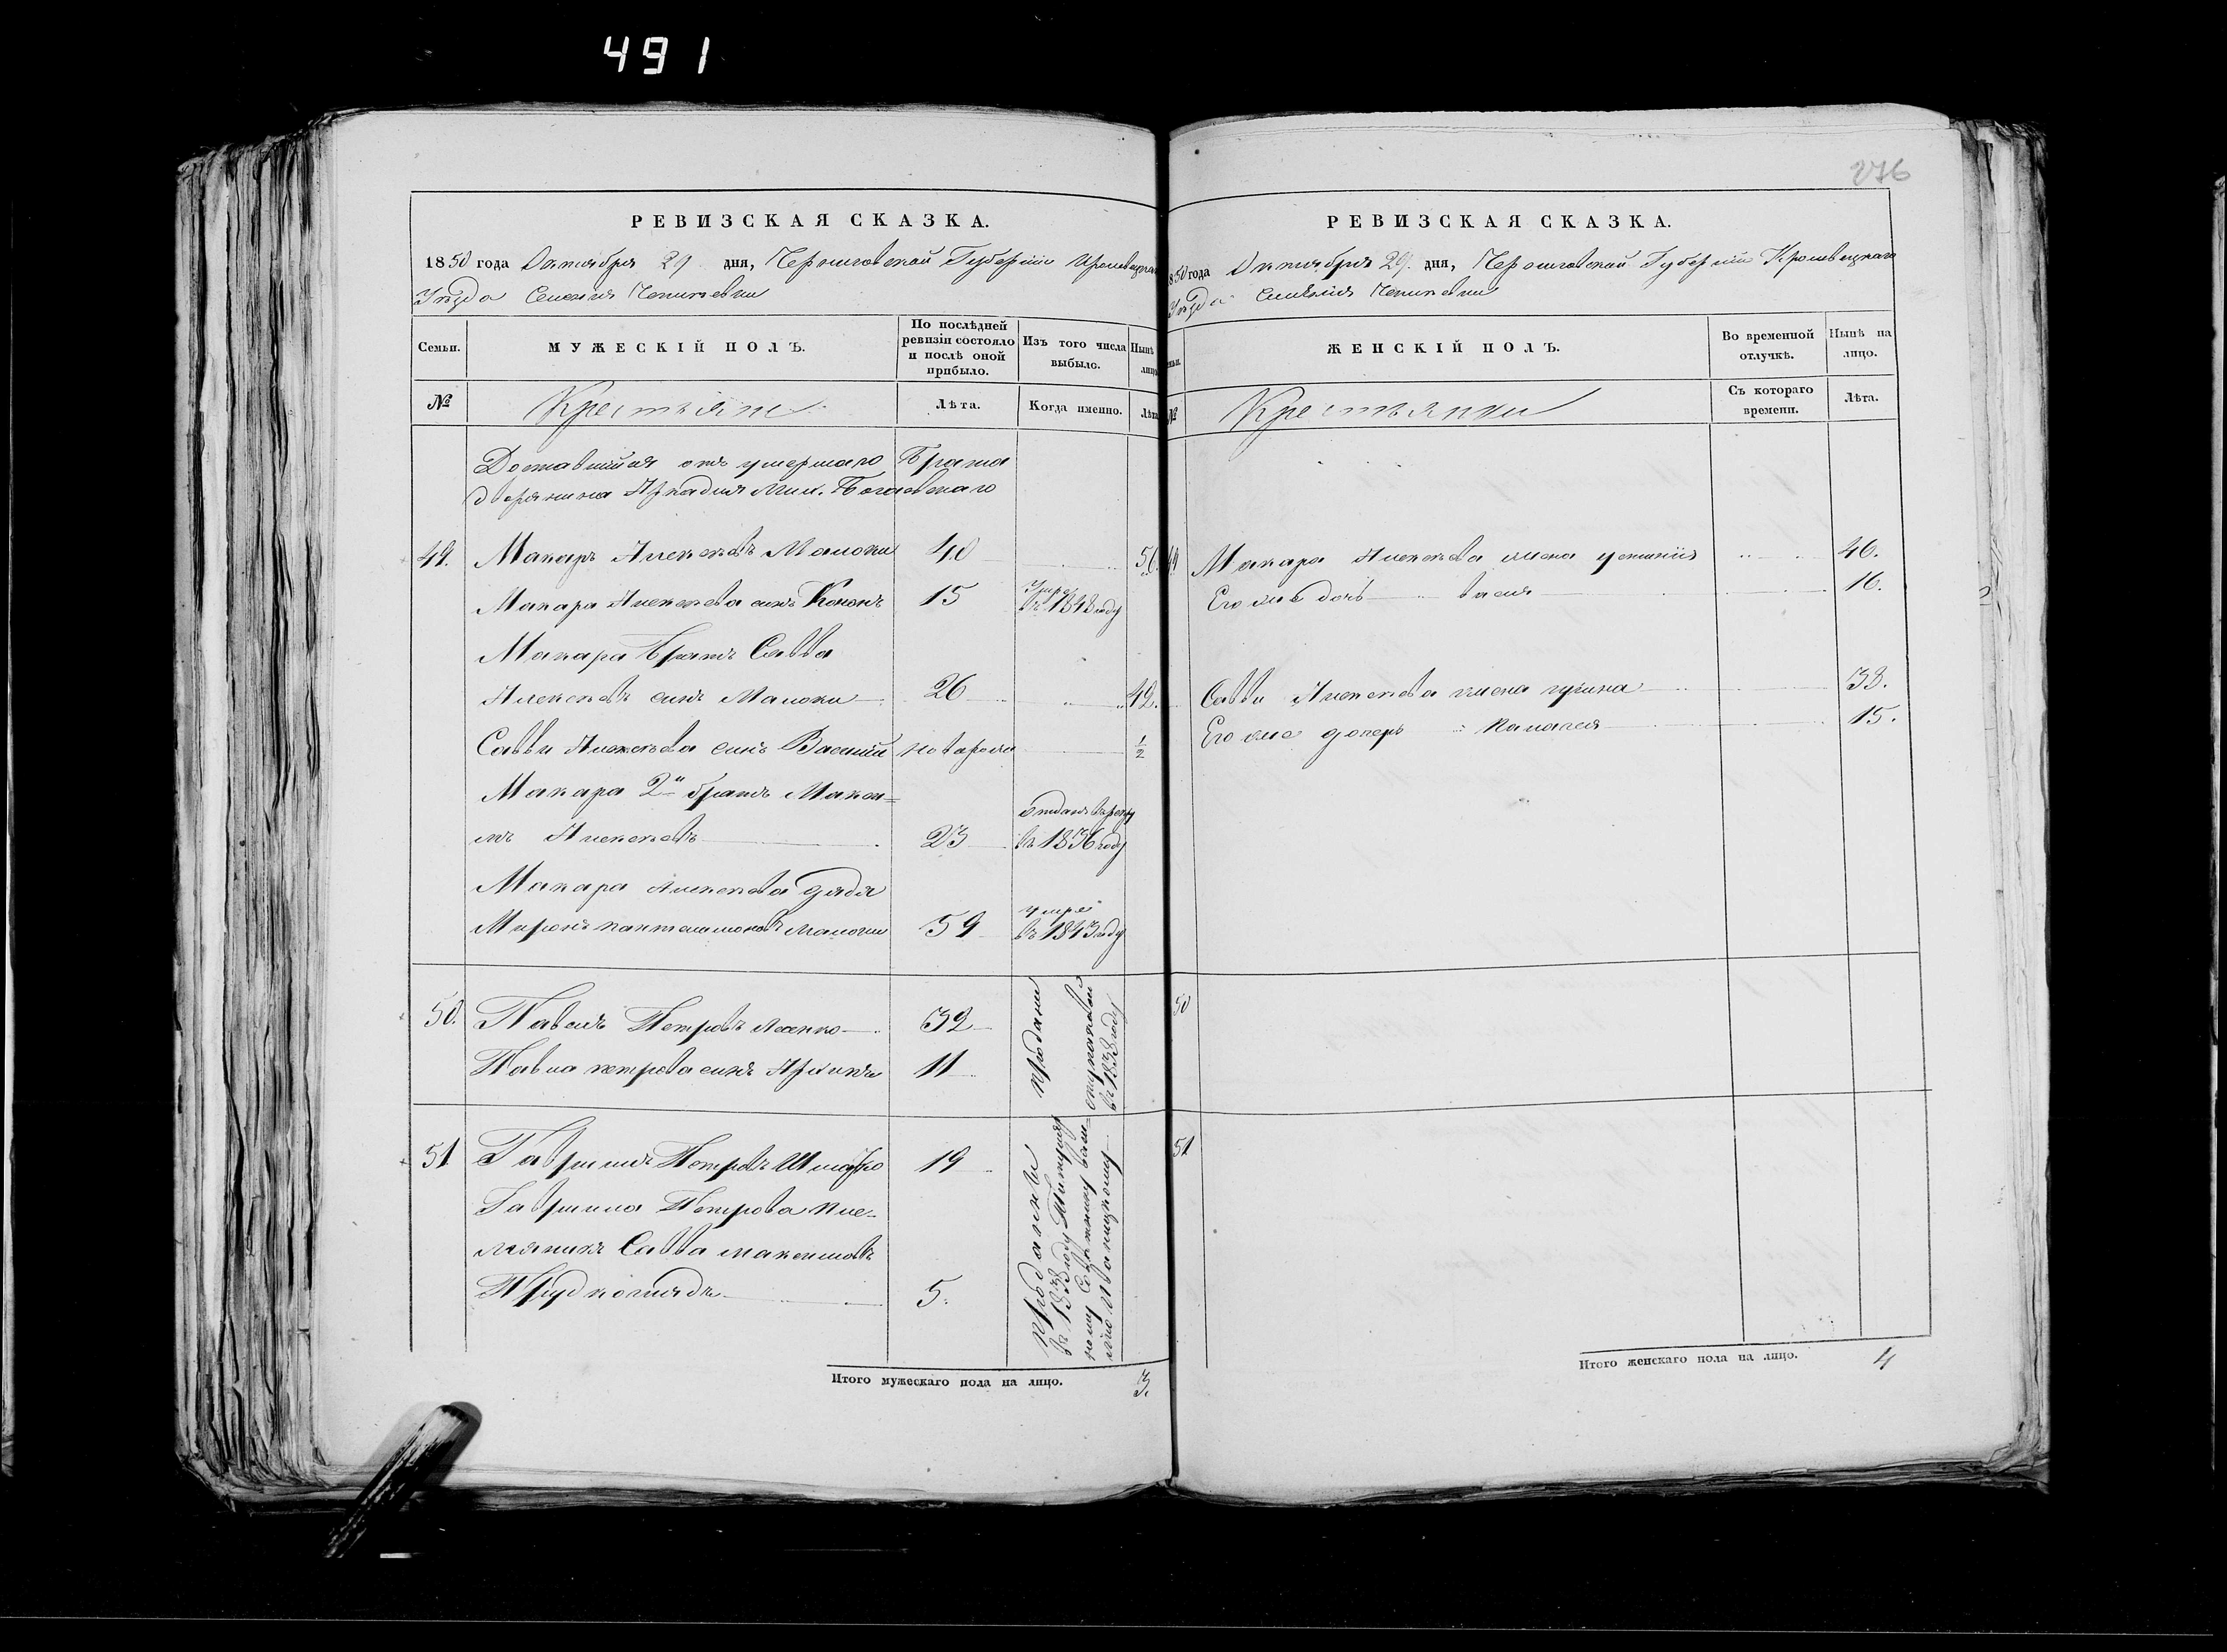 491
276
РЕВИЗСКАЯ СКАЗКА.
1850 года Октября 29 дня, Черниговской Губерніи Кролевецкаго
Уѣзда Селенія
МУЖЕСКІЙ ПОЛЪ.
Семьи.
По послѣдней ревизіи состояло и послѣ оной прибыло.
Изъ того числа выбыло.
Нынѣ на лицо
№
Крестьяне
Лѣта.
Когда именно.
Лѣта
Доставшіяся отъ умершаго Брата
дворянина Аркадія Мих.
49. Макаръ Алексѣевъ Малоки 40 50.
Макара Алексѣева сынъ Кононъ 15 Умре въ 1848 году
Макара Братъ Савва
Алексѣевъ сынъ Малоки 26 42.
Саввы Алексѣева сынъ Василій новарожд 1/2
Макара 2й братъ Макси=
мъ Алексѣевъ 23 отданъ врекр въ 1836 году
Макара Алексѣева дядя
Миронъ Пантелимоновъ Малоки 59 умре въ 1843 году
50. Павелъ Петровъ 32
Павла петрова сынъ Архипъ 11
проданы
въ 1838 году
51 Гаврилъ Петровъ 19
Гаврила Петрова пле-
мяникъ Савва Максимовъ
5.
проданы
въ 1838 году Титуляр
ному Совѣтнику
Итого мужескаго пола на лицо. 3.
РЕВИЗСКАЯ СКАЗКА.
850 года Октября 29. дня, Черниговской Губерніи Кролевецкаго
Уѣзда Селенія
ЖЕНСКІЙ ПОЛЪ.
Во временной отлучкѣ.
Нынѣ на лицо.
№
Крестьянки
Съ котораго времени.
Лѣта.
49 Макара Алексѣева жена 46.
Его же дочь 16.
Саввы Алексѣева жена 38.
Его же дочерь Палагея 15.
50
51
Итого женскаго пола на лицо. 4